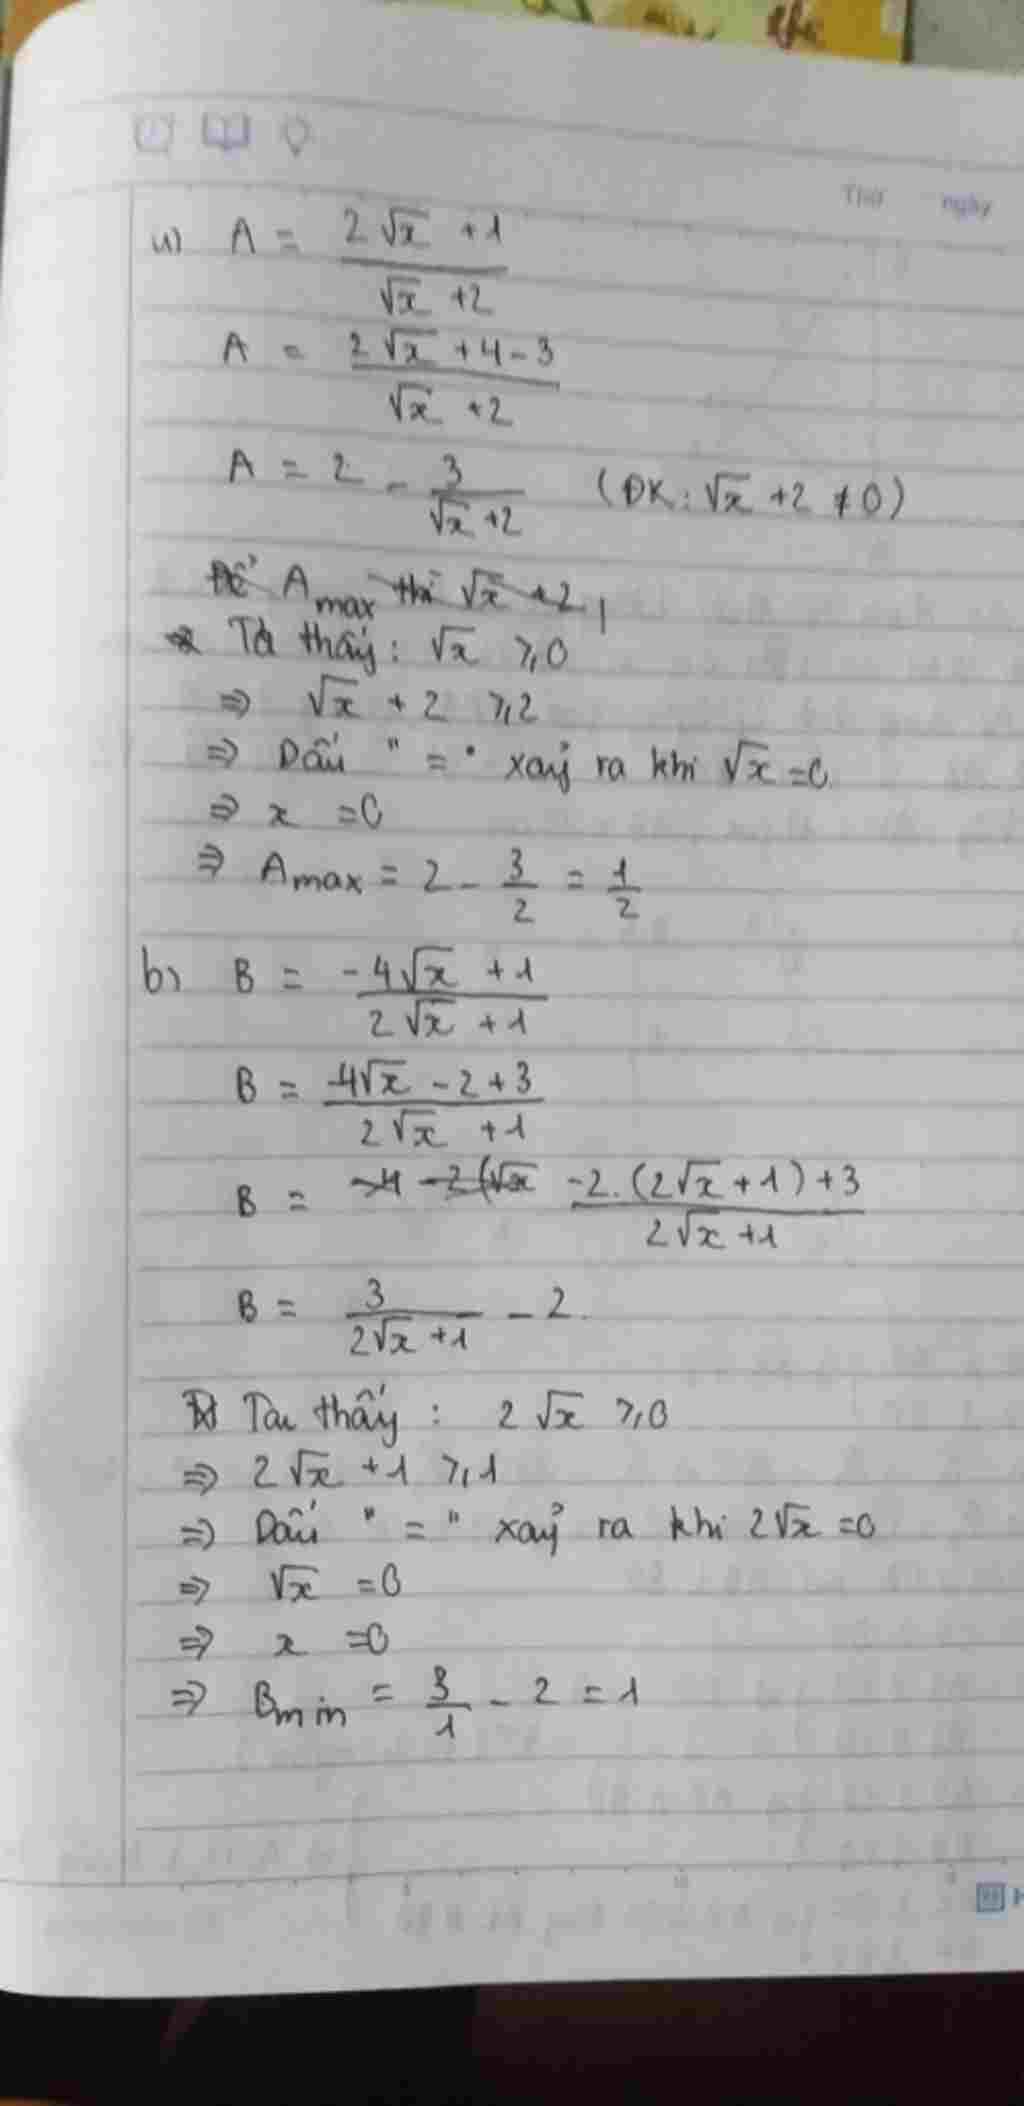 Thứ ngày
a) A = (2√x + 1)/(√x + 2)
A = (2√x + 4 - 3)/(√x + 2)
A = 2 - 3/(√x + 2) (ĐK: √x + 2 ≠ 0)
Để A max thì √x + 2
Ta thấy: √x ≥ 0
⇒ √x + 2 ≥ 2
⇒ Dấu " = " xảy ra khi √x = 0
⇒ x = 0
⇒ A max = 2 - 3/2 = 1/2
b) B = (-4√x + 1)/(2√x + 1)
B = (-4√x - 2 + 3)/(2√x + 1)
B = (-2.(2√x + 1) + 3)/(2√x + 1)
B = 3/(2√x + 1) - 2
Ta thấy: 2√x ≥ 0
⇒ 2√x + 1 ≥ 1
⇒ Dấu " = " xảy ra khi 2√x = 0
⇒ √x = 0
⇒ x = 0
⇒ B min = 3/1 - 2 = 1